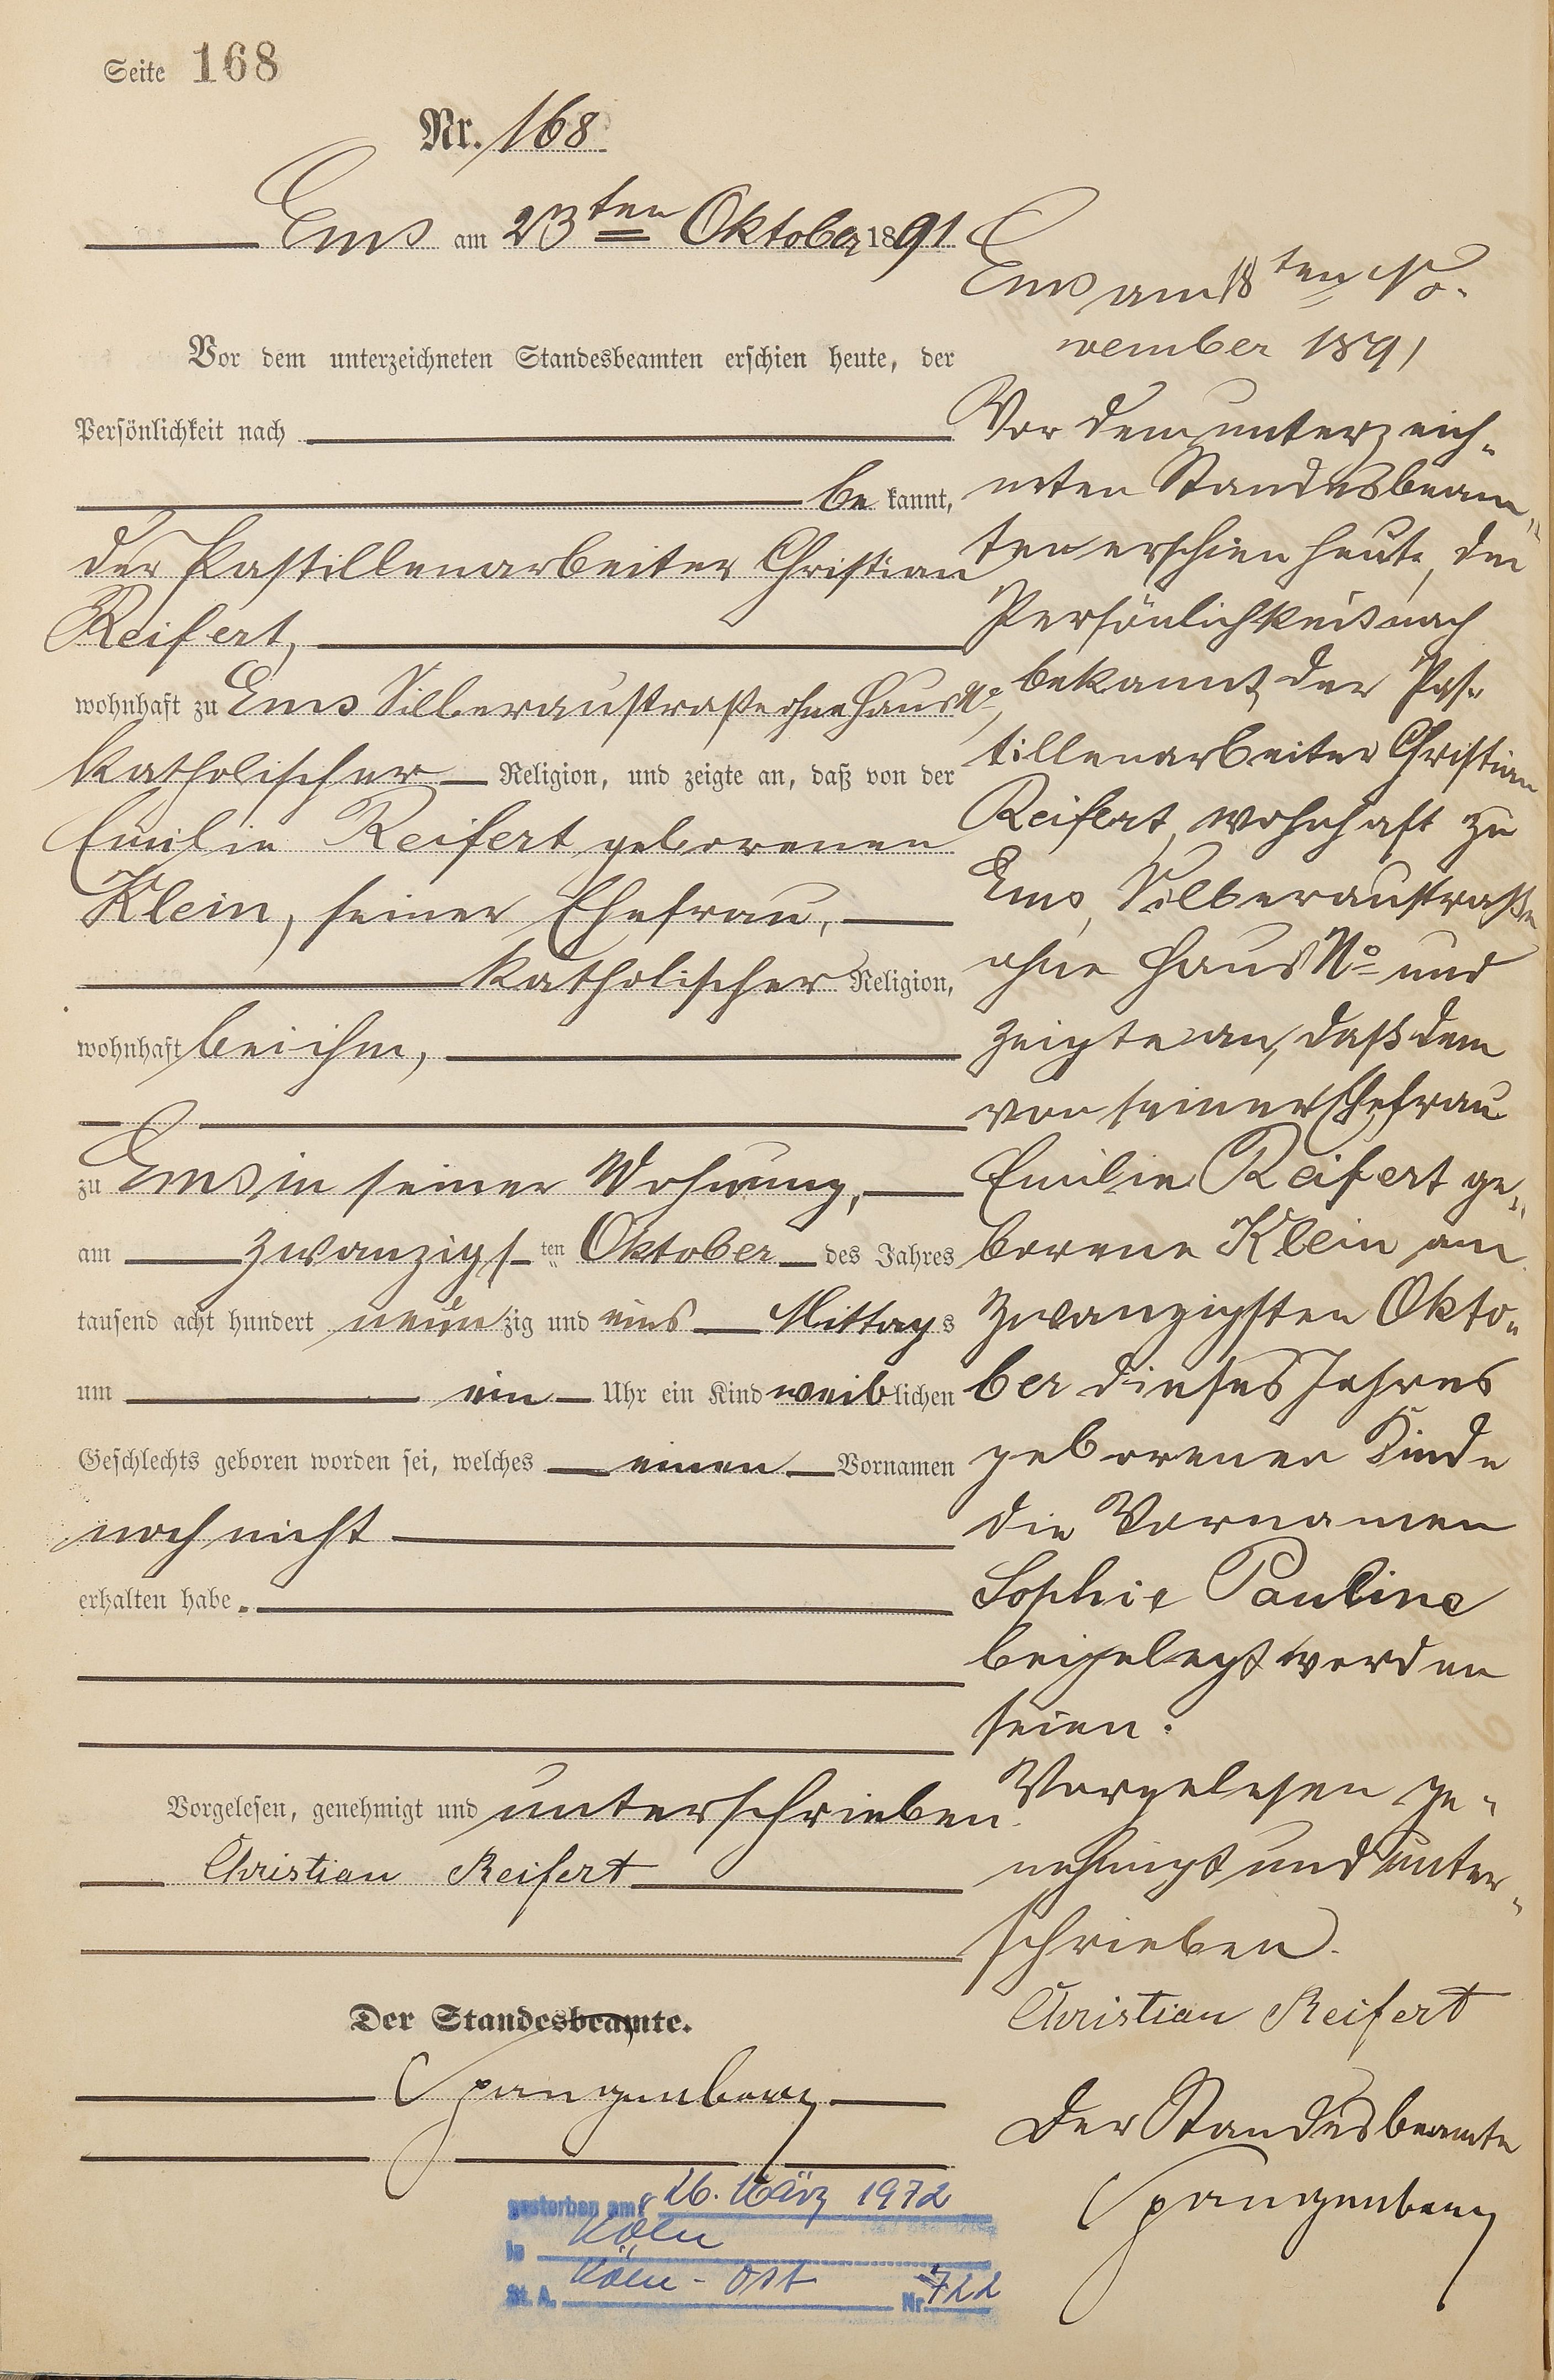 Seite 168
Nr. 168
Ems am 23ten Oktober 1891
Vor dem unterzeichneten Standesbeamten erschien heute, der
Persönlichkeit nach
be kannt,
der Pastillenarbeiter Christian
Reifert,
wohnhaft zu Ems Silberaustraße ohne Haus No,
katholischer Religion, und zeigte an, daß von der
Emilie Reifert geborenen
Klein, seiner Ehefrau,
katholischer Religion,
wohnhaft bei ihm,
zu Ems in seiner Wohnung,
am zwanzigsten Oktober des Jahres
tausend acht hundert neunzig und eins Mittags
um ein Uhr ein Kind weiblichen
Geschlechts geboren worden sei, welches einen Vornamen
noch nicht
erhalten habe.
Vorgelesen, genehmigt und unterschrieben.
Christian Reifert
Der Standesbeamte.
Spangenberg
Ems am 18ten No-
vember 1891
Vor dem unterzeich-
neten Standesbeam-
ten erschien heute, der
Persönlichkeit nach
bekannt, der Pas-
tillenarbeiter Christian
Reifert, wohnhaft zu
Ems, Silberaustraße
ohne Haus No und
zeigte an, daß dem
von seiner Ehefrau
Emilie Reifert ge-
borene Klein am
zwanzigsten Okto-
ber dieses Jahres
geborenen Kinde
die Vornamen
Sophie Pauline
beigelegt worden
seien.
Vorgelesen ge-
nehmigt und unter-
schrieben.
Christian Reifert
Der Standesbeamte
Spangenberg
gestorben am 26. März 1972
in Köln
St. A. Köln-Ost Nr. 722